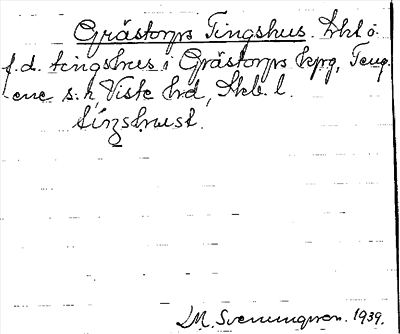 Grästorps Tingshus. Lkl ö.
f.d. tingshus i Grästorps kpg, Teng
ene s:n, Viste hrd, Skb. l.
L. M. Svenungsson. 1939.